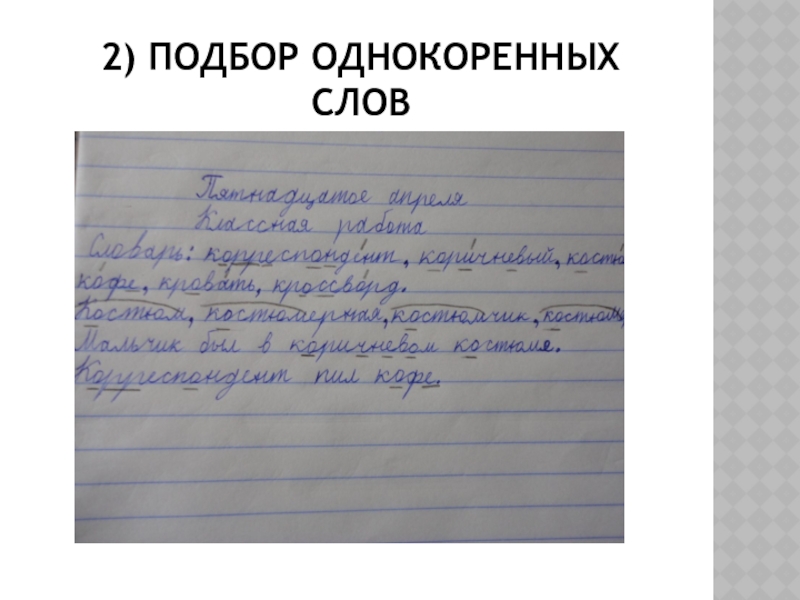 2) ПОДБОР ОДНОКОРЕННЫХ
СЛОВ
Пятнадцатое апреля
Классная работа
Словарь: корреспондент, коричневый,
кофе, кровать, кроссворд.
Костюм, костюмерная, костюмчик,
Мальчик был в коричневом костюме.
Корреспондент пил кофе.